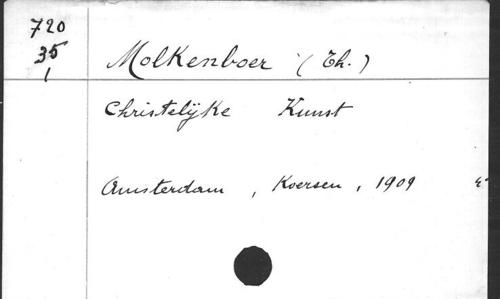 720
35
1
Molkenboer (Th.)
Christelijke Kunst
Amsterdam, Koersen, 1909 4°